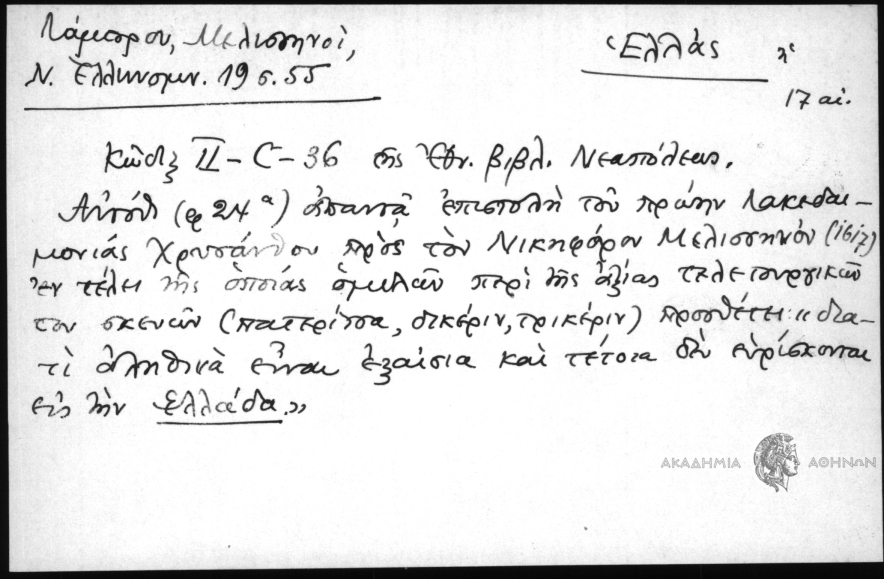 Λάμπρου, Μελισσηνοὶ,
Ν. Ἑλληνομν. 19 σ. 55
Ἑλλάς
17 αἰ.
Κῶδιξ II-C-36 τῆς Ἐθν. βιβλ. Νεαπόλεως.
Αὐτόθι (φ 24α) ἀπαντᾷ ἐπιστολὴ τοῦ πρώην Λακεδαι-
μονίας Χρυσάνθου πρὸς τὸν Νικηφόρον Μελισσηνόν (1617)
ἐν τέλει τῆς ὁποίας ὁμιλῶν περὶ τῆς ἀξίας τελετουργικῶν
του σκευῶν (πατερίτσα, δικέριν, τρικέριν) προσθέτει: «δια-
τὶ ἀληθινὰ εἶναι ἐξαίσια καὶ τέτοια δὲν εὑρίσκονται
εἰς τὴν Ἑλλάδα.»
ΑΚΑΔΗΜΙΑ ΑΘΗΝΩΝ